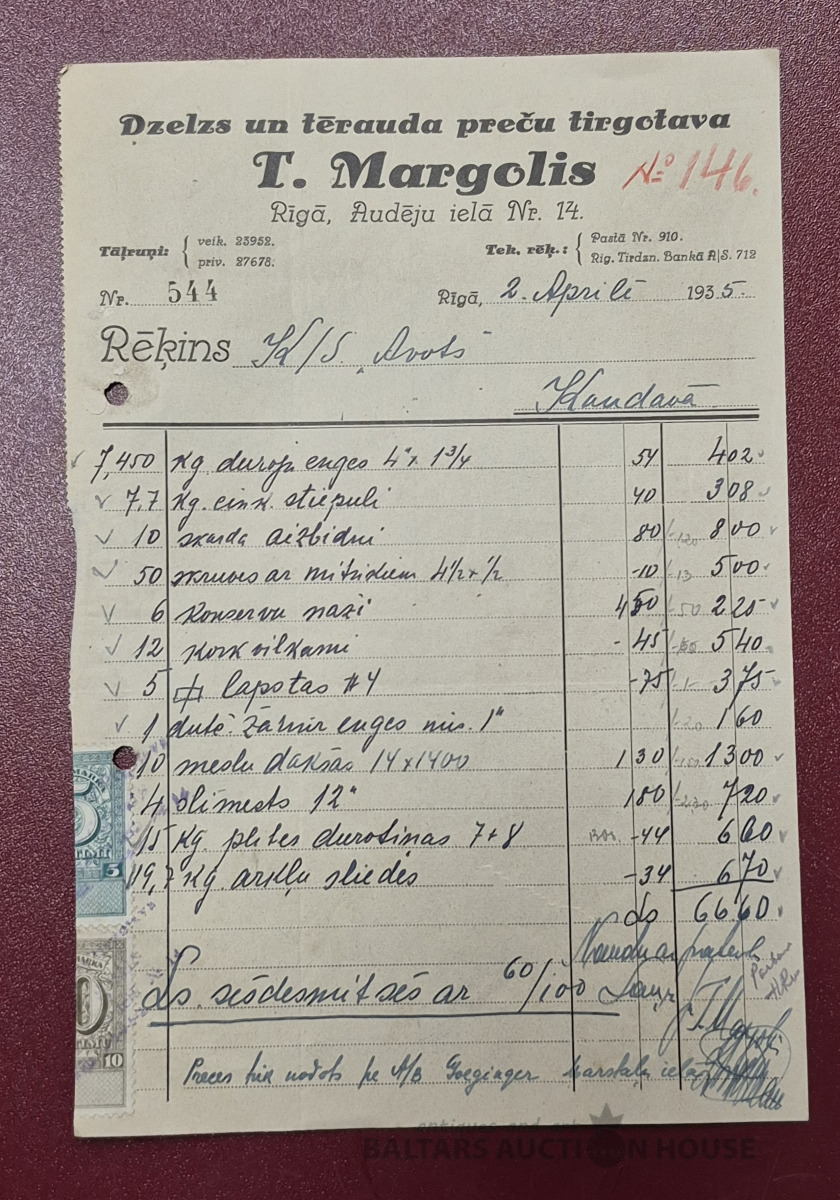 Dzelzs un tērauda preču tirgotava
T. Margolis
№ 146.
Rīgā, Audēju ielā Nr. 14.
Tāļruņi: { veik. 23952. priv. 27678.
Tek. rēķ.: { Pastā Nr. 910. Rīg. Tirdzn. Bankā A|S. 712
Nr. 544
Rīgā, 2. Aprilē 1935.
Rēķins K/S. „Avots"
Kandavā
7,450 Kg. duroju enges 4" x 1 3/4 54 402
7,7 Kg. cink. stiepuli 40 308
10 skarda aizbidni 80 800
50 skruves ar 4 1/2 x 1/2 -10 500
6 Konservu naži 450 225
12 korkvilkami -45 540
5 lapstas #4 -75 375
1 enges 1" 160
10 meslu dakšas 14x1400 130 1300
4 12" 180 720
15 Kg. plites durotinas 7+8 -44 660
19,7 Kg. arklu sliedes -34 670
Ls 6660
Naudu
Ls. sešdesmit seš ar 60/100
Preces tik nodots pe A/B Goeginger ielā
5
10
BALTARS AUCTION HOUSE